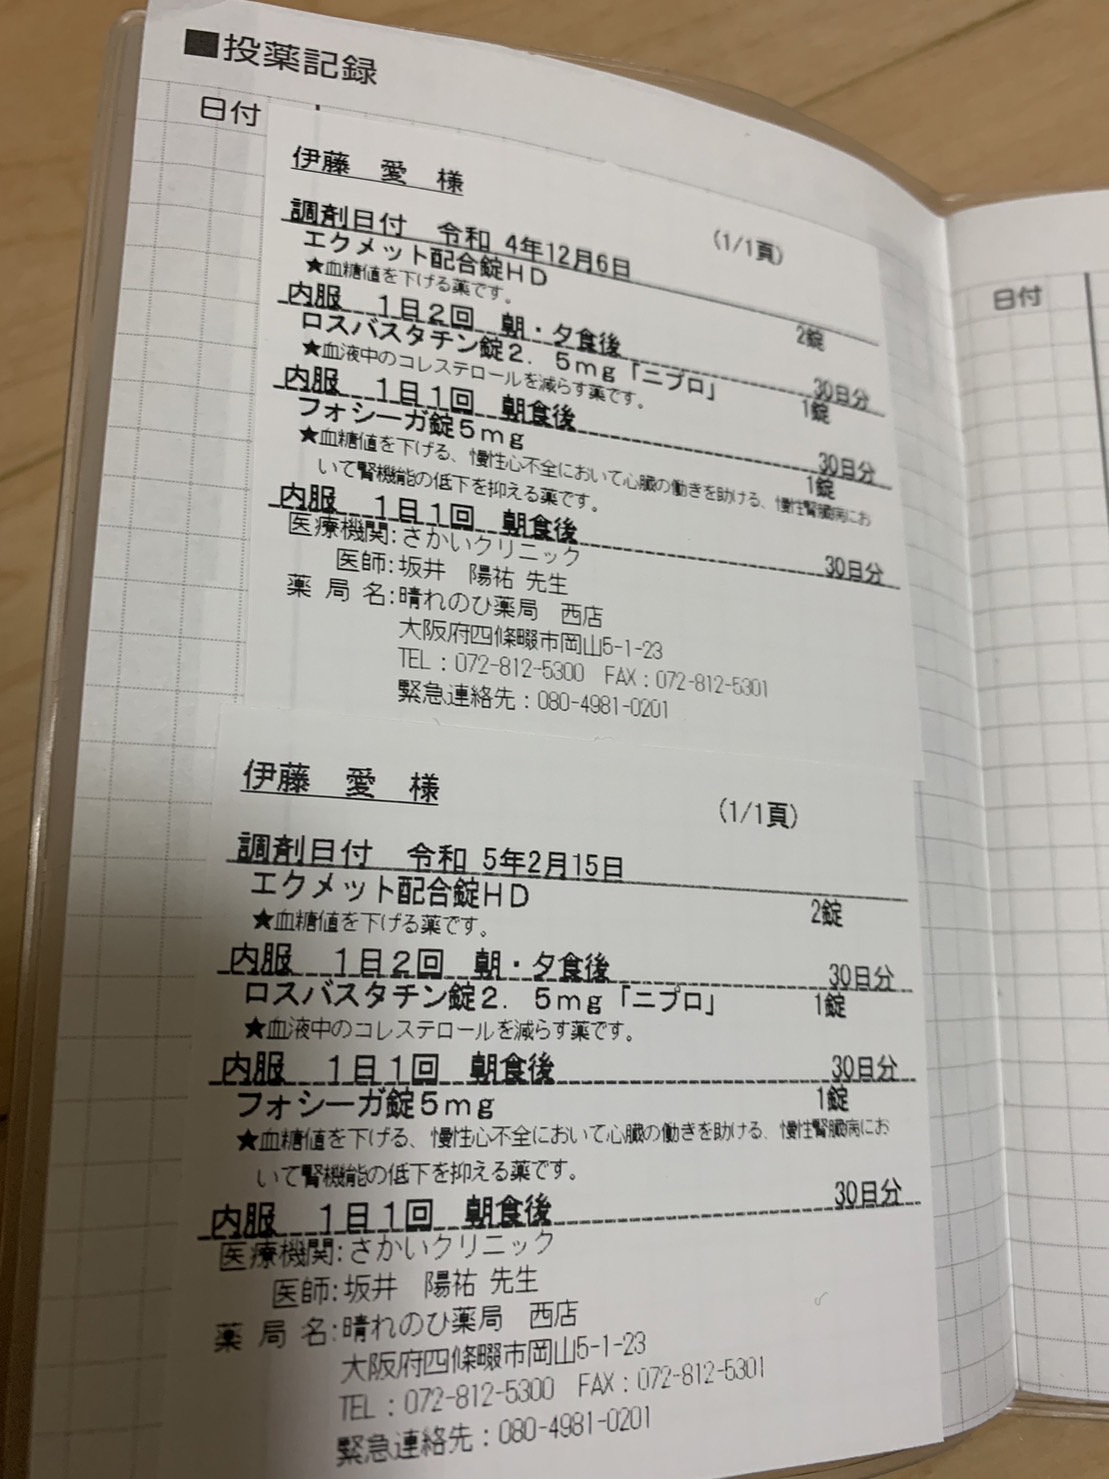 ■投薬記録
日付
伊藤 愛 様
(1/1頁)
調剤日付 令和 4年12月6日
エクメット配合錠HD 2錠
★血糖値を下げる薬です。
内服 1日2回 朝・夕食後 30日分
ロスバスタチン錠2.5mg「ニプロ」 1錠
★血液中のコレステロールを減らす薬です。
内服 1日1回 朝食後 30日分
フォシーガ錠5mg 1錠
★血糖値を下げる、慢性心不全において心臓の働きを助ける、慢性腎臓病にお
いて腎機能の低下を抑える薬です。
内服 1日1回 朝食後 30日分
医療機関:さかいクリニック
医師:坂井 陽祐 先生
薬 局 名:晴れのひ薬局 西店
大阪府四條畷市岡山5-1-23
TEL:072-812-5300 FAX:072-812-5301
緊急連絡先:080-4981-0201
伊藤 愛 様
(1/1頁)
調剤日付 令和 5年2月15日
エクメット配合錠HD 2錠
★血糖値を下げる薬です。
内服 1日2回 朝・夕食後 30日分
ロスバスタチン錠2.5mg「ニプロ」 1錠
★血液中のコレステロールを減らす薬です。
内服 1日1回 朝食後 30日分
フォシーガ錠5mg 1錠
★血糖値を下げる、慢性心不全において心臓の働きを助ける、慢性腎臓病にお
いて腎機能の低下を抑える薬です。
内服 1日1回 朝食後 30日分
医療機関:さかいクリニック
医師:坂井 陽祐 先生
薬 局 名:晴れのひ薬局 西店
大阪府四條畷市岡山5-1-23
TEL:072-812-5300 FAX:072-812-5301
緊急連絡先:080-4981-0201
日付